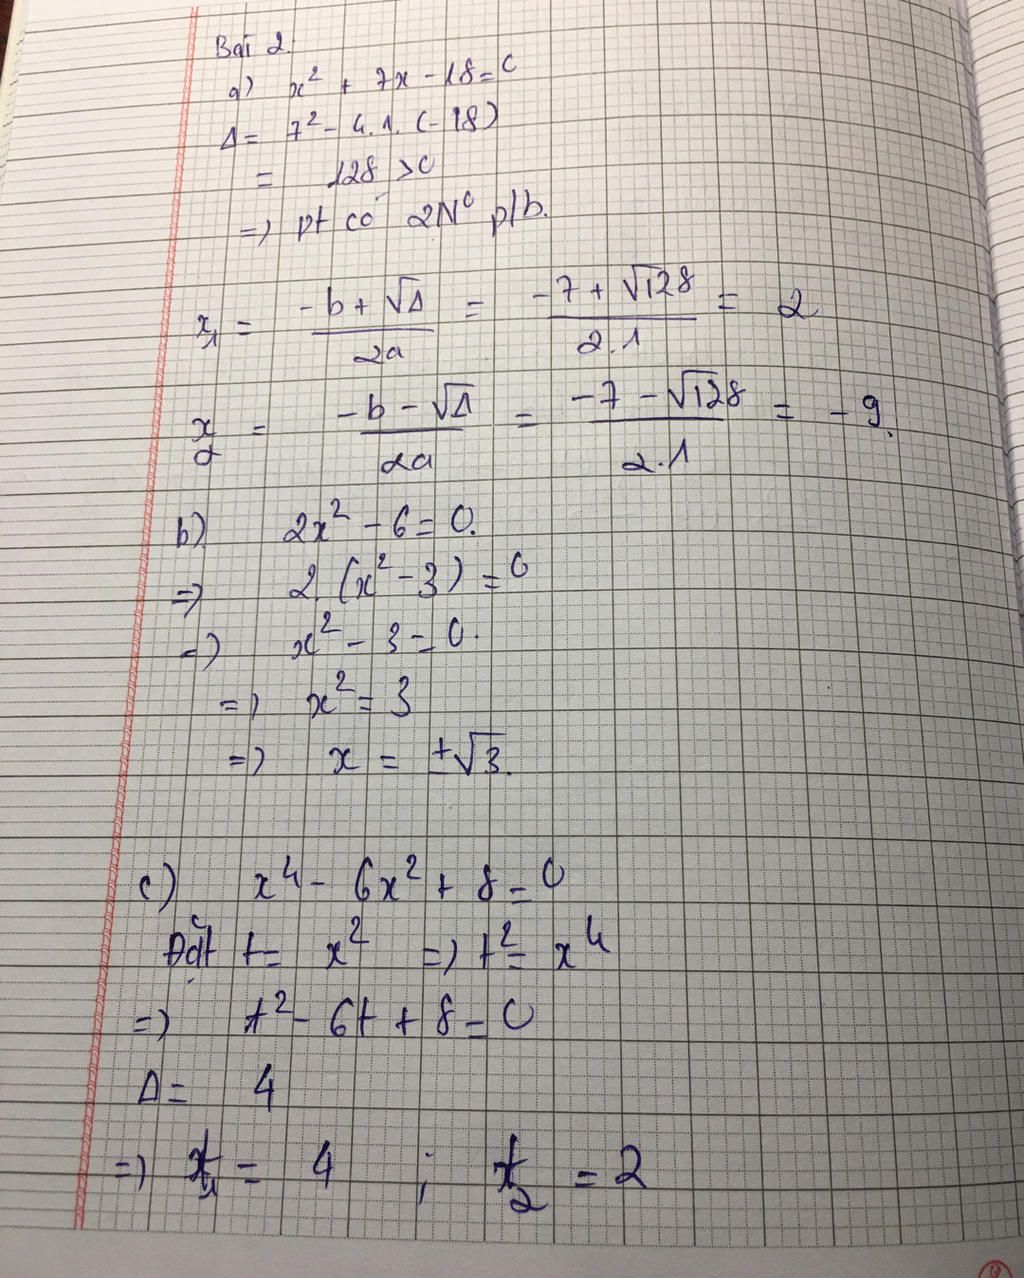 Bài 2.
a) x² + 7x - 18 = 0
Δ = 7² - 4.1.(-18)
= 128 > 0
=> pt có 2N⁰ p/b.
x₁ = (-b + √Δ)/2a = (-7 + √128)/2.1 = 2
x₂ = (-b - √Δ)/2a = (-7 - √128)/2.1 = -9.
b) 2x² - 6 = 0.
=> 2.(x² - 3) = 0
=> x² - 3 = 0.
=> x² = 3
=> x = ±√3.
c) x⁴ - 6x² + 8 = 0
Đặt t = x² => t² = x⁴
=> t² - 6t + 8 = 0
Δ = 4
=> t₁ = 4 ; t₂ = 2